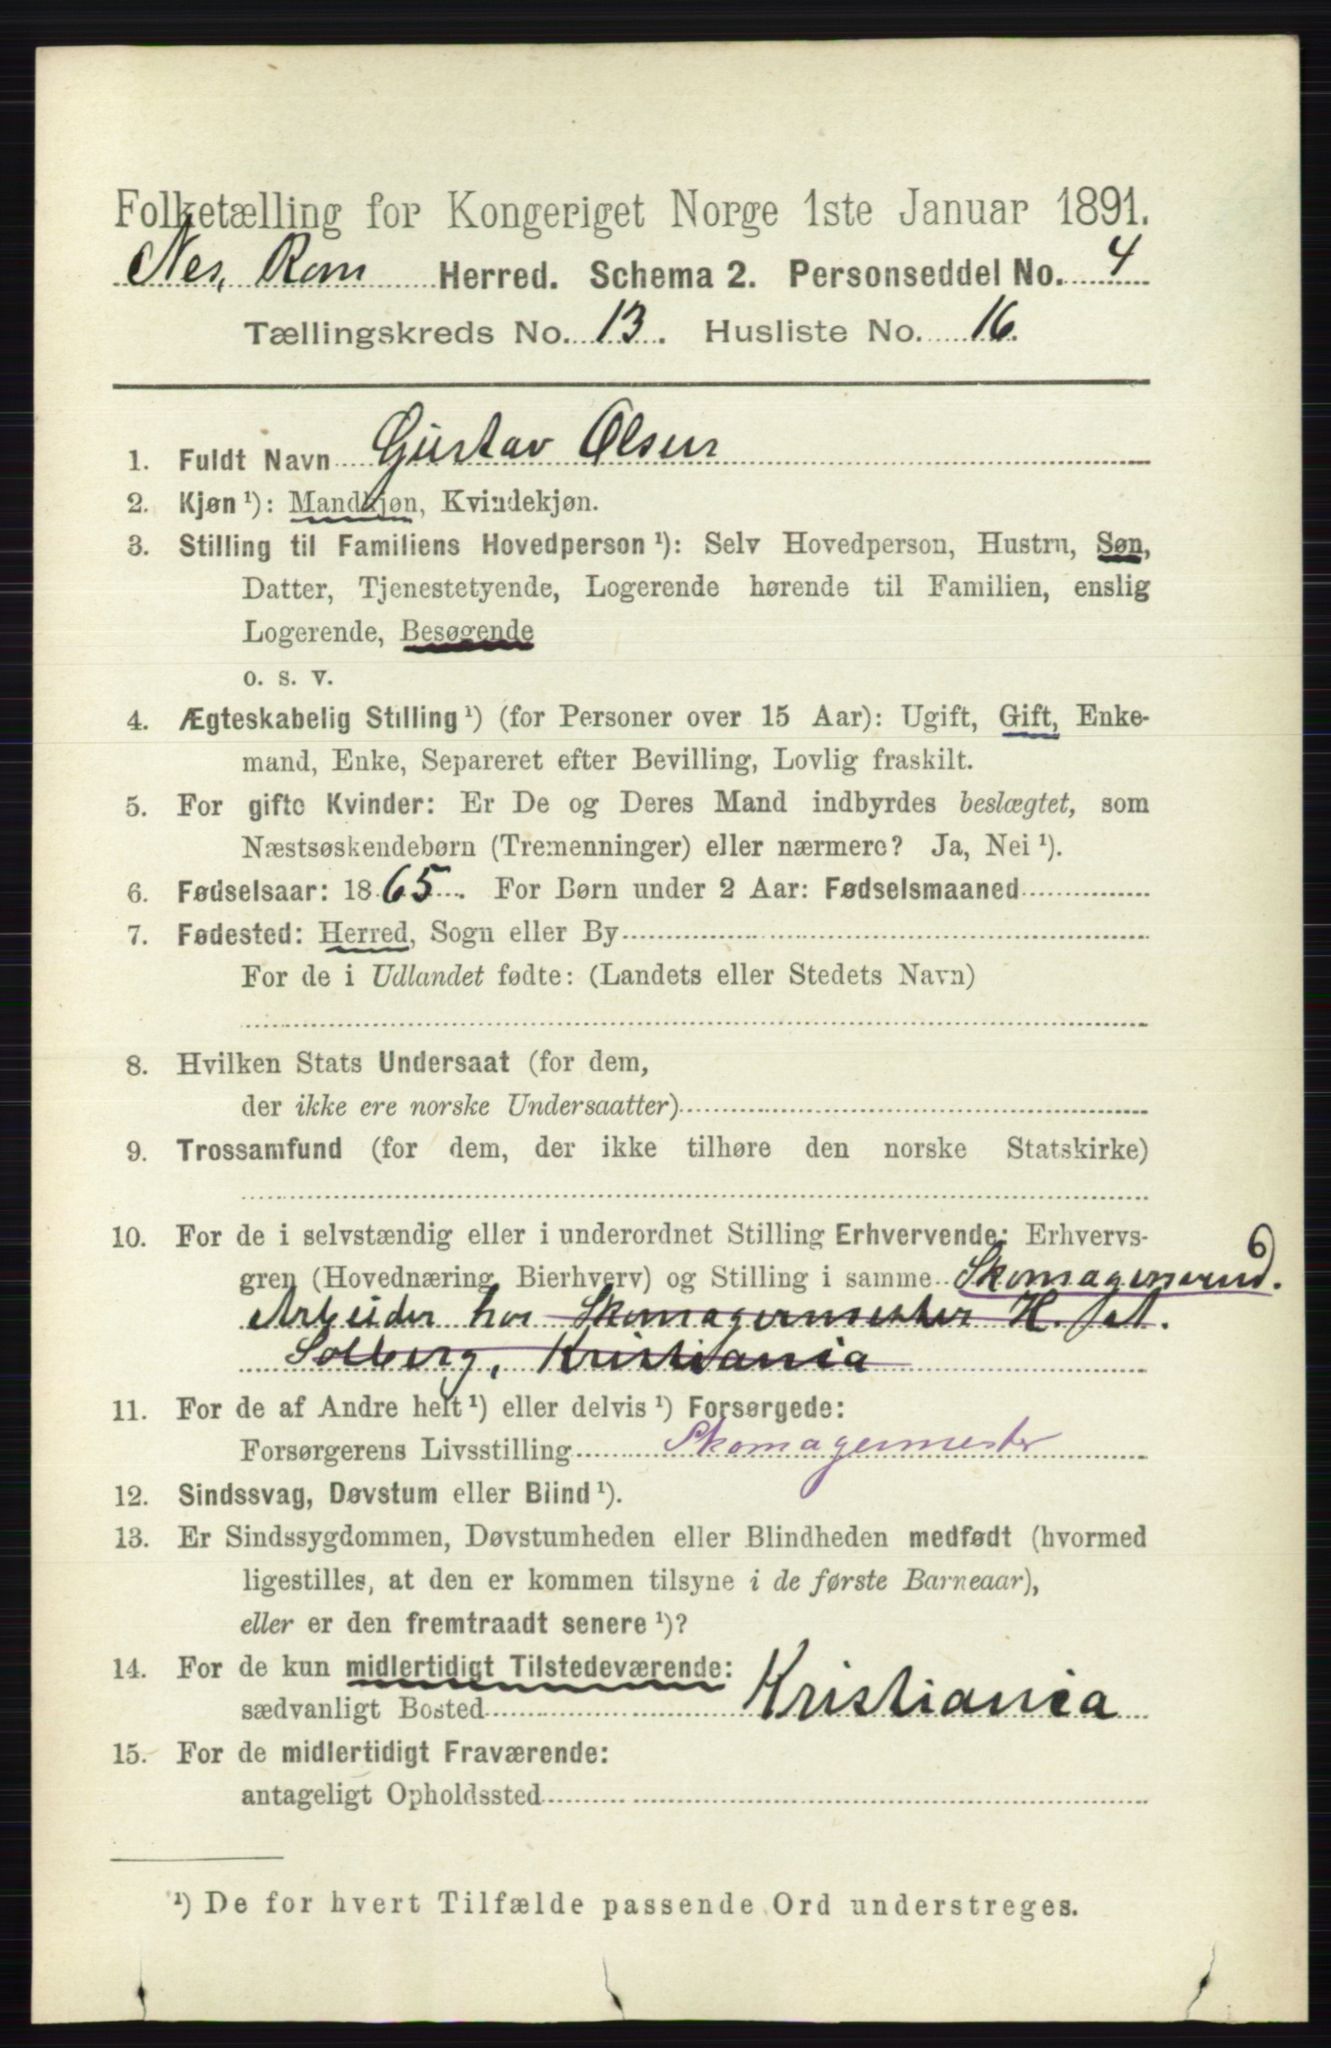 Folketælling for Kongeriget Norge 1ste Januar 1891.
Nes, Rom Herred. Schema 2. Personseddel No. 4
Tællingskreds No. 13. Husliste No. 16.
1. Fuldt Navn Gustav Olsen
2. Kjøn ¹): Mandkjøn, Kvindekjøn.
3. Stilling til Familiens Hovedperson ¹): Selv Hovedperson, Hustru, Søn,
Datter, Tjenestetyende, Logerende hørende til Familien, enslig
Logerende, Besøgende
o. s. v.
4. Ægteskabelig Stilling ¹) (for Personer over 15 Aar): Ugift, Gift, Enke-
mand, Enke, Separeret efter Bevilling, Lovlig fraskilt.
5. For gifte Kvinder: Er De og Deres Mand indbyrdes beslægtet, som
Næstsøskendebørn (Tremenninger) eller nærmere? Ja, Nei ¹).
6. Fødselsaar: 1865. For Børn under 2 Aar: Fødselsmaaned
7. Fødested: Herred, Sogn eller By
For de i Udlandet fødte: (Landets eller Stedets Navn)
8. Hvilken Stats Undersaat (for dem,
der ikke ere norske Undersaatter)
9. Trossamfund (for dem, der ikke tilhøre den norske Statskirke)
10. For de i selvstændig eller i underordnet Stilling Erhvervende: Erhvervs-
6
gren (Hovednæring, Bierhverv) og Stilling i samme Skomagersvend.
Arbeider hos Skomagermester H.
Solberg, Kristiania
11. For de af Andre helt ¹) eller delvis ¹) Forsørgede:
Forsørgerens Livsstilling Skomagermester
12. Sindssvag, Døvstum eller Blind ¹).
13. Er Sindssygdommen, Døvstumheden eller Blindheden medfødt (hvormed
ligestilles, at den er kommen tilsyne i de første Barneaar),
eller er den fremtraadt senere ¹)?
14. For de kun midlertidigt Tilstedeværende:
sædvanligt Bosted Kristiania
15. For de midlertidigt Fraværende:
antageligt Opholdssted
¹) De for hvert Tilfælde passende Ord understreges.